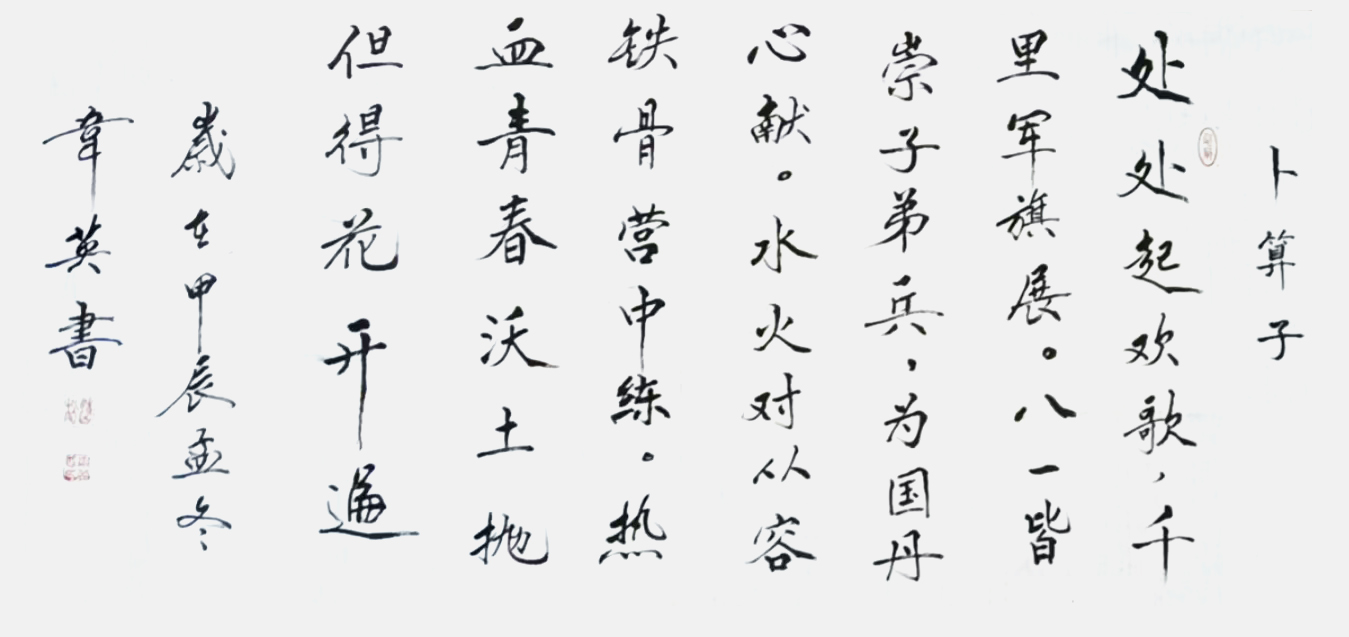 卜算子
处处起欢歌,千
里军旗展。八一皆
崇子弟兵,为国丹
心献。水火对从容
铁骨营中练。热
血青春沃土抛
但得花开遍
歲在甲辰孟冬
韋英書